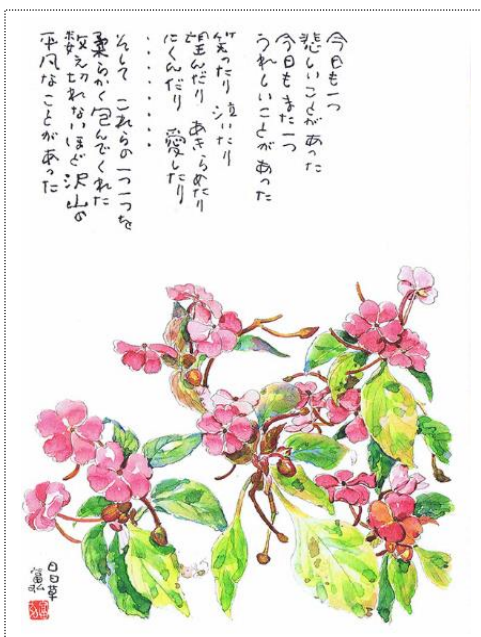 今日も一つ
悲しいことがあった
今日もまた一つ
うれしいことがあった
笑ったり 泣いたり
望んだり あきらめたり
にくんだり 愛したり
・・・・・・
そして これらの一つ一つを
柔らかく包んでくれた
数え切れないほど沢山の
平凡なことがあった
日日草
富弘